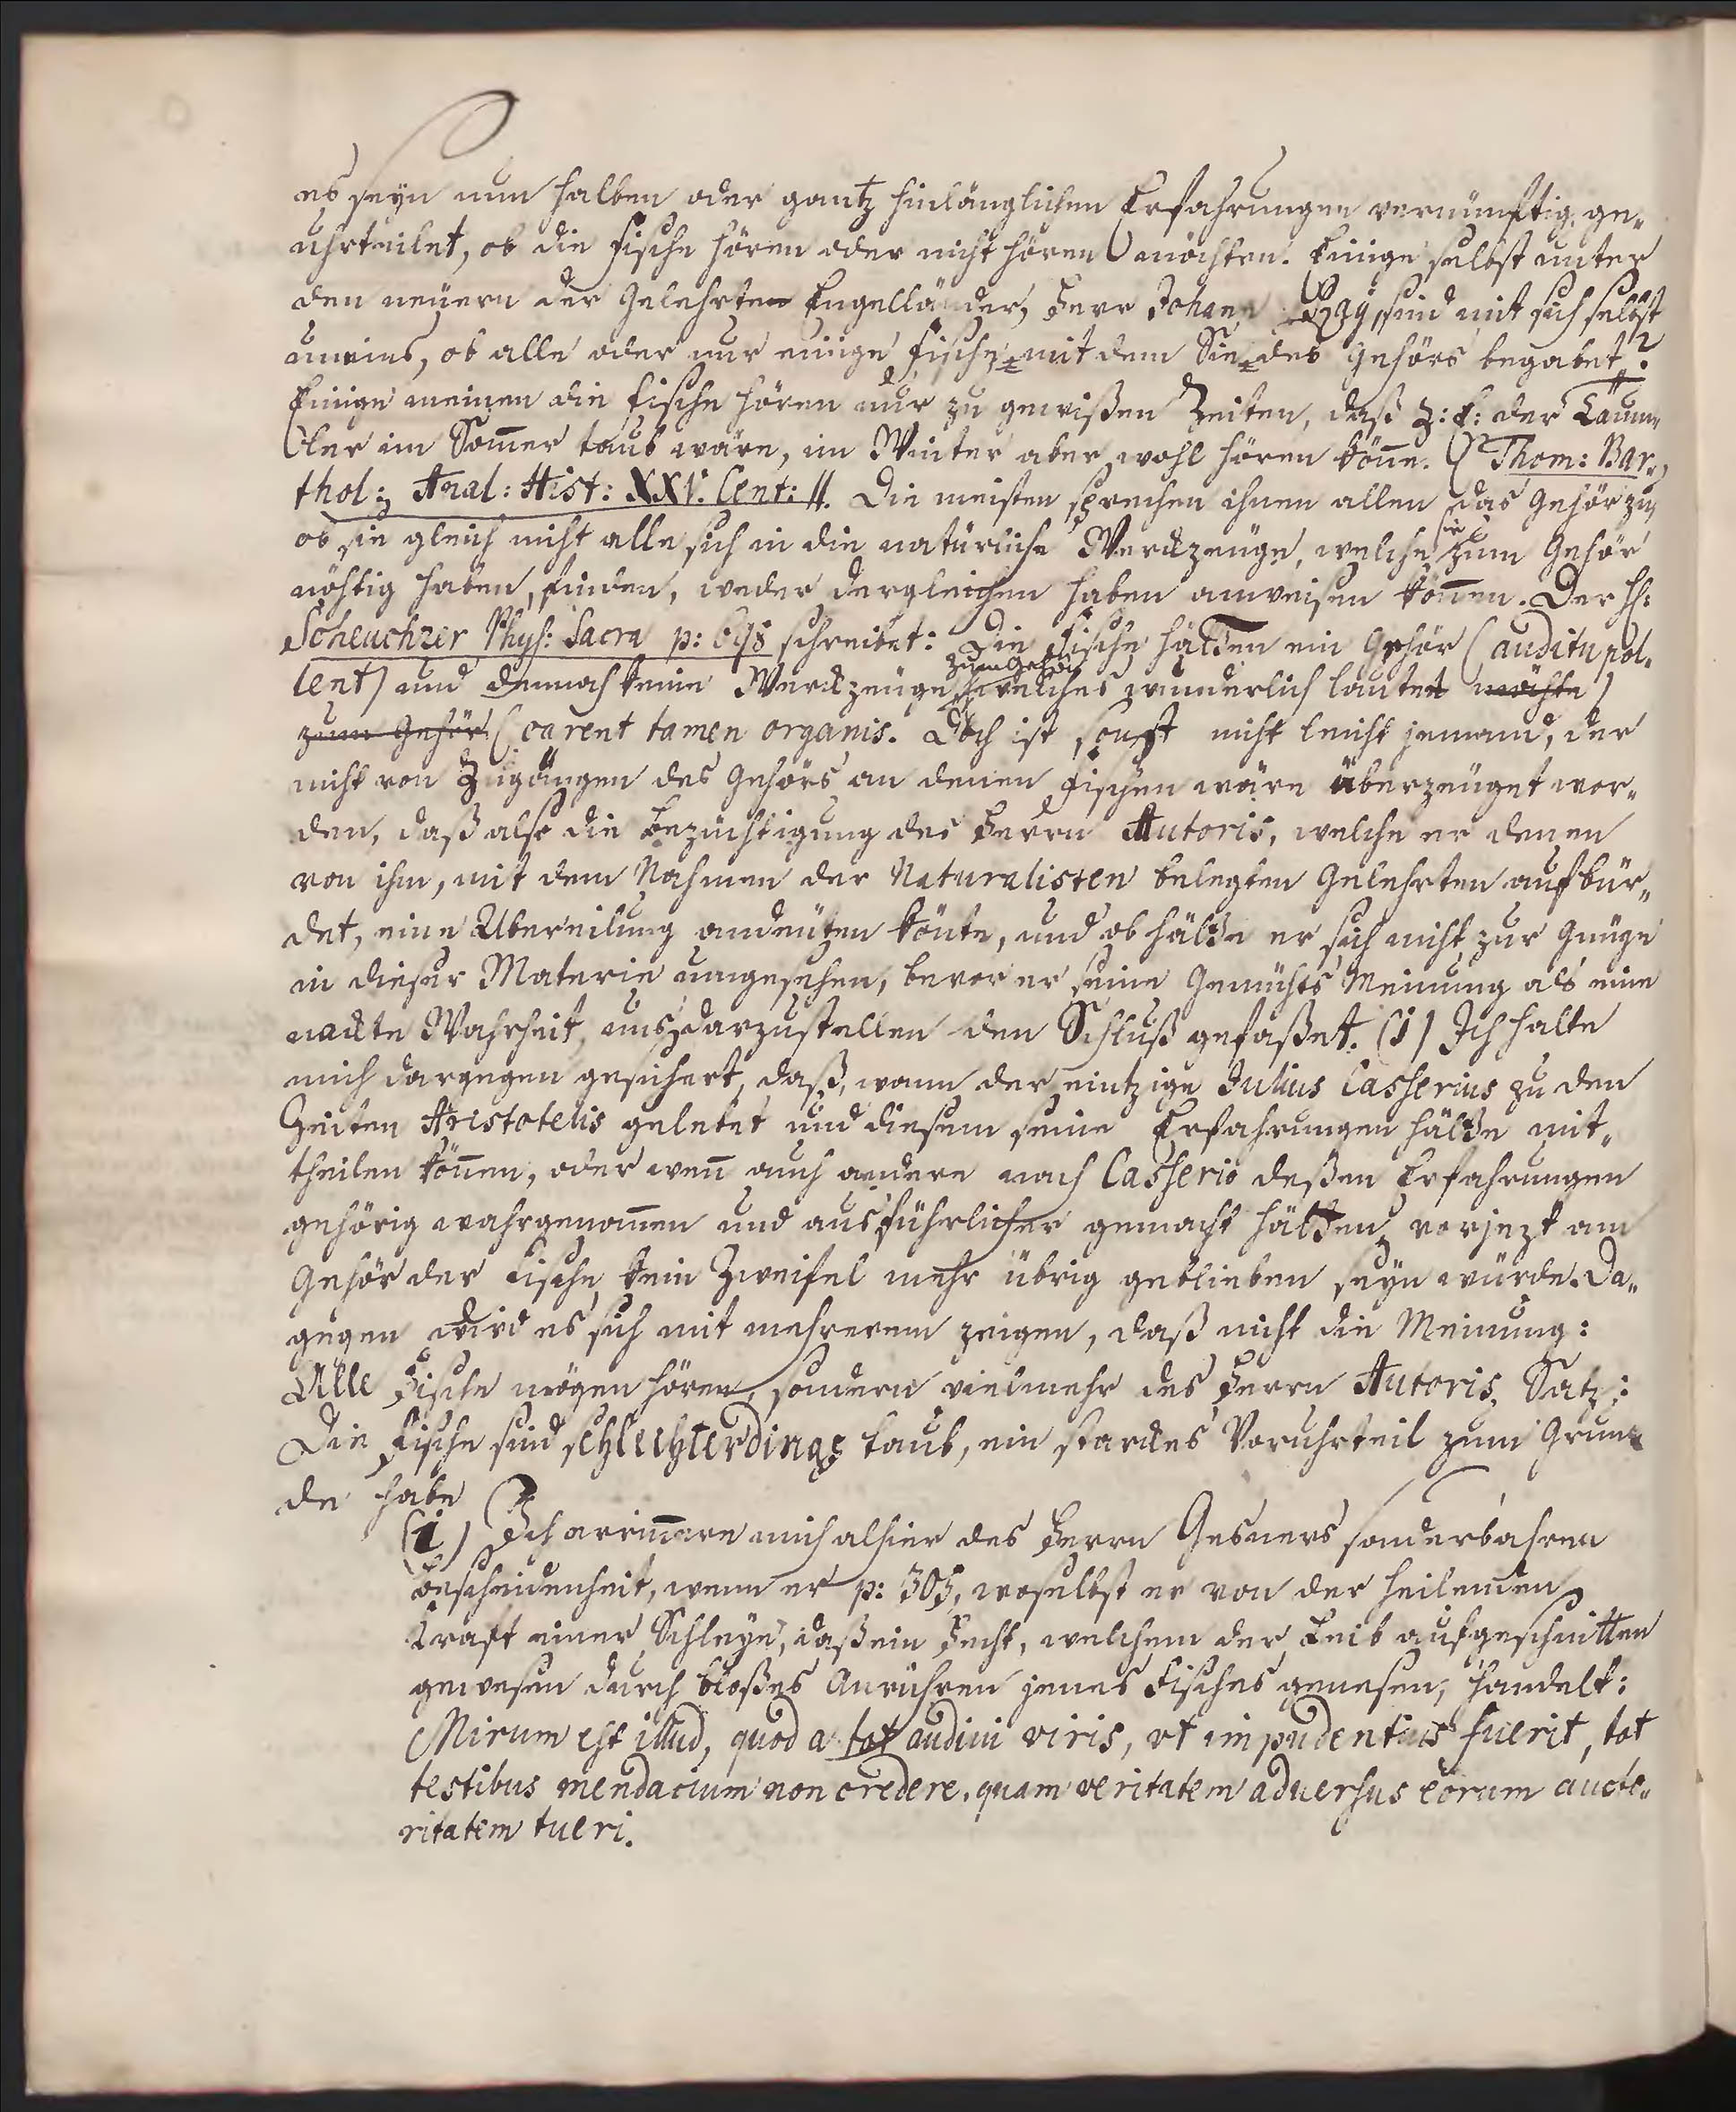 es seyn nun halben oder gantz hinlänglichen Erfahrungen vernünftig ge„
uhrteilet, ob die Fische hören oder nicht hören möchten. Einige selbst unter
den neüern der Gelehrten Engelländer, Herr Johann Ray, sind mit sich selbst
uneins, ob alle oder nur einige Fische mit dem Sin des Gehörs begabet?
Einige meinen die Fische hören nur zu gewißen Zeiten, daß z: E: der
im Som̅er taub wäre, im Winter aber wohl hören kön̅e. (Thom: Bar„
thol: Anal: Hist: XXV. Cent: II. Die meisten sprechen ihnen allen das Gehör zu,
ob sie gleich nicht alle sich in die natürliche Werckzeuge, welche sie zum Gehör
nöhtig haben, finden, weder dergleichen haben anweisen kön̅en. Der H:
Scheuchzer Phys: Sacra p: 698 schreibet: Die Fische hätten ein Gehör (auditu pol„
lent) und dennoch keine Werckzeuge zum Gehör (welches wunderlich lautet möchte)
zum Gehör (carent tamen organis. Doch ist sonst nicht leicht jemand, der
nicht von Zugängen des Gehörs an denen Fischen wäre überzeuget wor„
den, daß also die Bezüchtigung des Herrn Autoris, welche er denen
von ihm, mit dem Nahmen der Naturalisten belegten Gelehrten aufbür„
det, eine Ubereilung andeuten könte, und ob hätte er sich nicht zur Gnüge
in dieser Materie umgesehen, bevor er seine Gemühts Meinung als eine
nackte Wahrheit uns darzustellen den Schluß gefaßet. (i) Ich halte
mich dargegen gesichert, daß, wann der eintzige Julius Casserius zu den
Zeiten Aristotelis gelebet und diesem seine Erfahrungen hätte mit„
theilen kön̅en, oder wen̅ auch andere nach Casserio deßen Erfahrungen
gehörig wahrgenom̅en und ausführlicher gemacht hätten, vorjezt am
Gehör der Fische kein Zweifel mehr übrig geblieben seyn würde. Da„
gegen wird es sich mit mehrerem zeigen, daß nicht die Meinung:
Alle Fische mögen hören, sondern vielmehr des Herrn Autoris Satz:
Die Fische sind schlechterdings taub, ein starckes Voruhrteil zum Grun„
de habe
(i) Ich erin̅ere mich alhier des Herrn Gesners sonderbahren
Bescheidenheit, wenn er p: 303, woselbst er von der heilenden
Kraft einer Schleye, daß ein Hecht, welchem der Leib aufgeschnitten
gewesen durch bloßes Anrühren jenes Fisches genesen, handelt:
Mirum est illud, quod a tot audivi viris, vt impudentius fuerit, tot
testibus mendacium non credere, quam veritatem aduersus eorum aucto„
ritatem tueri.